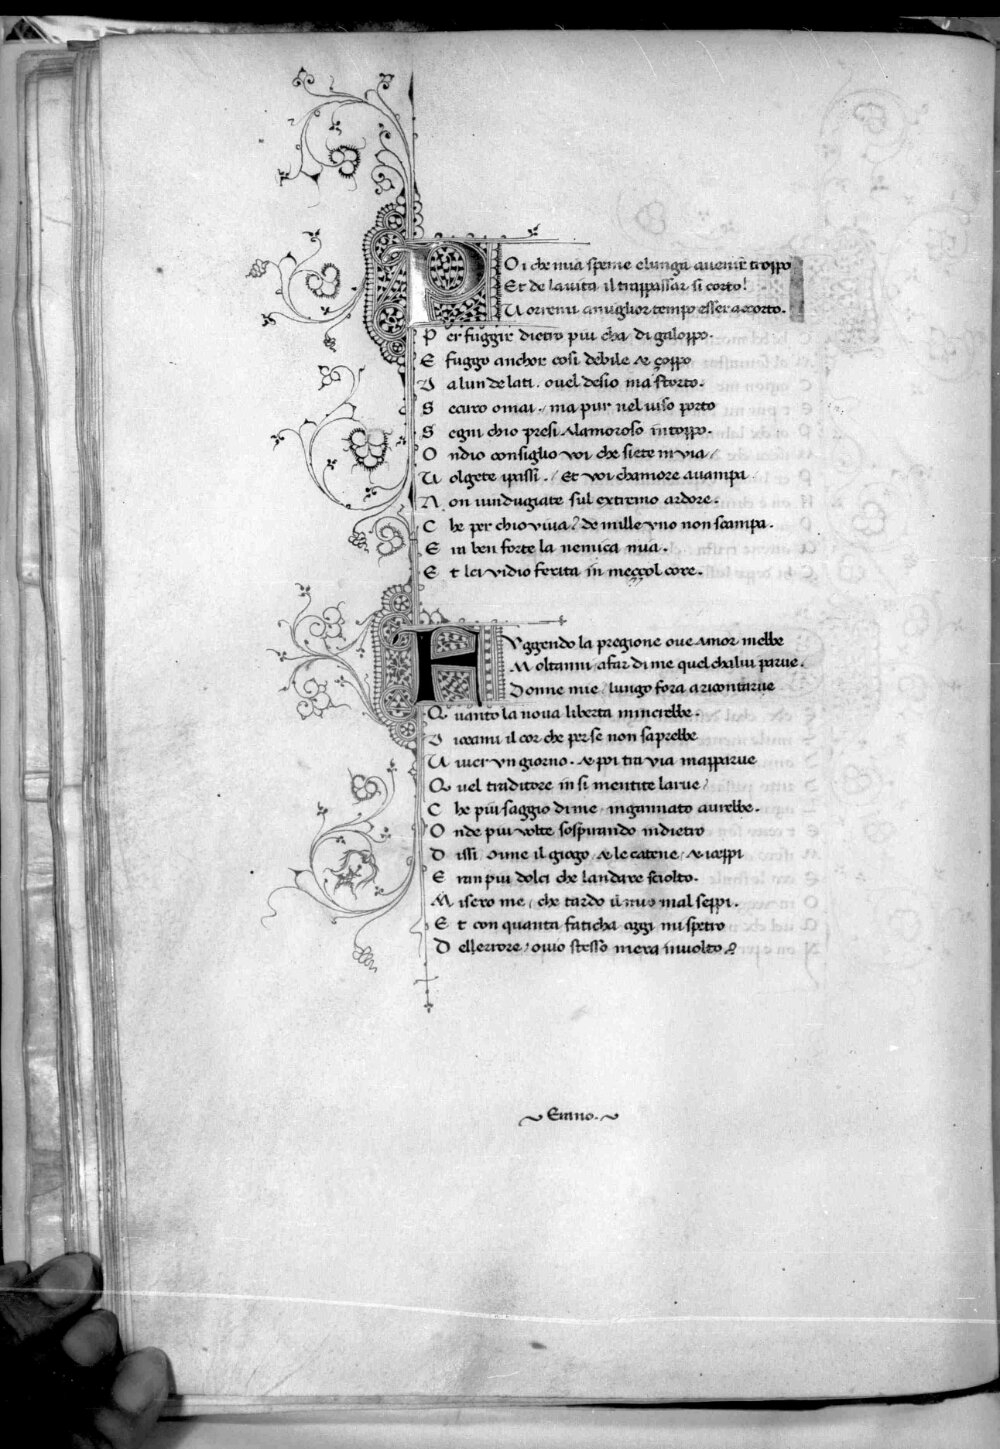 POi che mia speme e lunga a uenir troppo
Et de la uita il trappassar si corto!
Vorremi a miglior tempo esser accorto.
Per fuggir dietro piu cha di galoppo.
E fuggo anchor cosi debile & çoppo
Da lun de lati. ouel desio ma storto.
Securo omai, ma pur nel uiso porto
Segni chio presi Alamoroso intoppo.
Ondio consiglio voi che siete in via,
Volgete ipassi. Et voi chamore auampa
Non uindugiate sul extremo ardore.
Che per chio viua? de mille vno non scampa.
Era ben forte la nemica mia.
Et lei vidio ferita in meççol core.
FVggendo la pregione oue Amor mebbe
Moltanni, a far di me quel chalui parue.
Donne mie, lungo fora a ricontarue
Quanto la noua liberta mincrebbe.
Diceami il cor che per se non saprebbe
Viuer vn giorno. & poi tra via mapparue
Quel traditore in si mentite larue,
Che piu saggio di me, ingannato aurebbe.
Onde piu volte sospirando indietro
Dissi, oime il giogo, & le catene, & iceppi
Eran piu dolci che landare sciolto.
Misero me, che tardo il mio mal seppi.
Et con quanta faticha oggi mi spetro
Dellerrore, ouio stesso mera inuolto.
Erano.